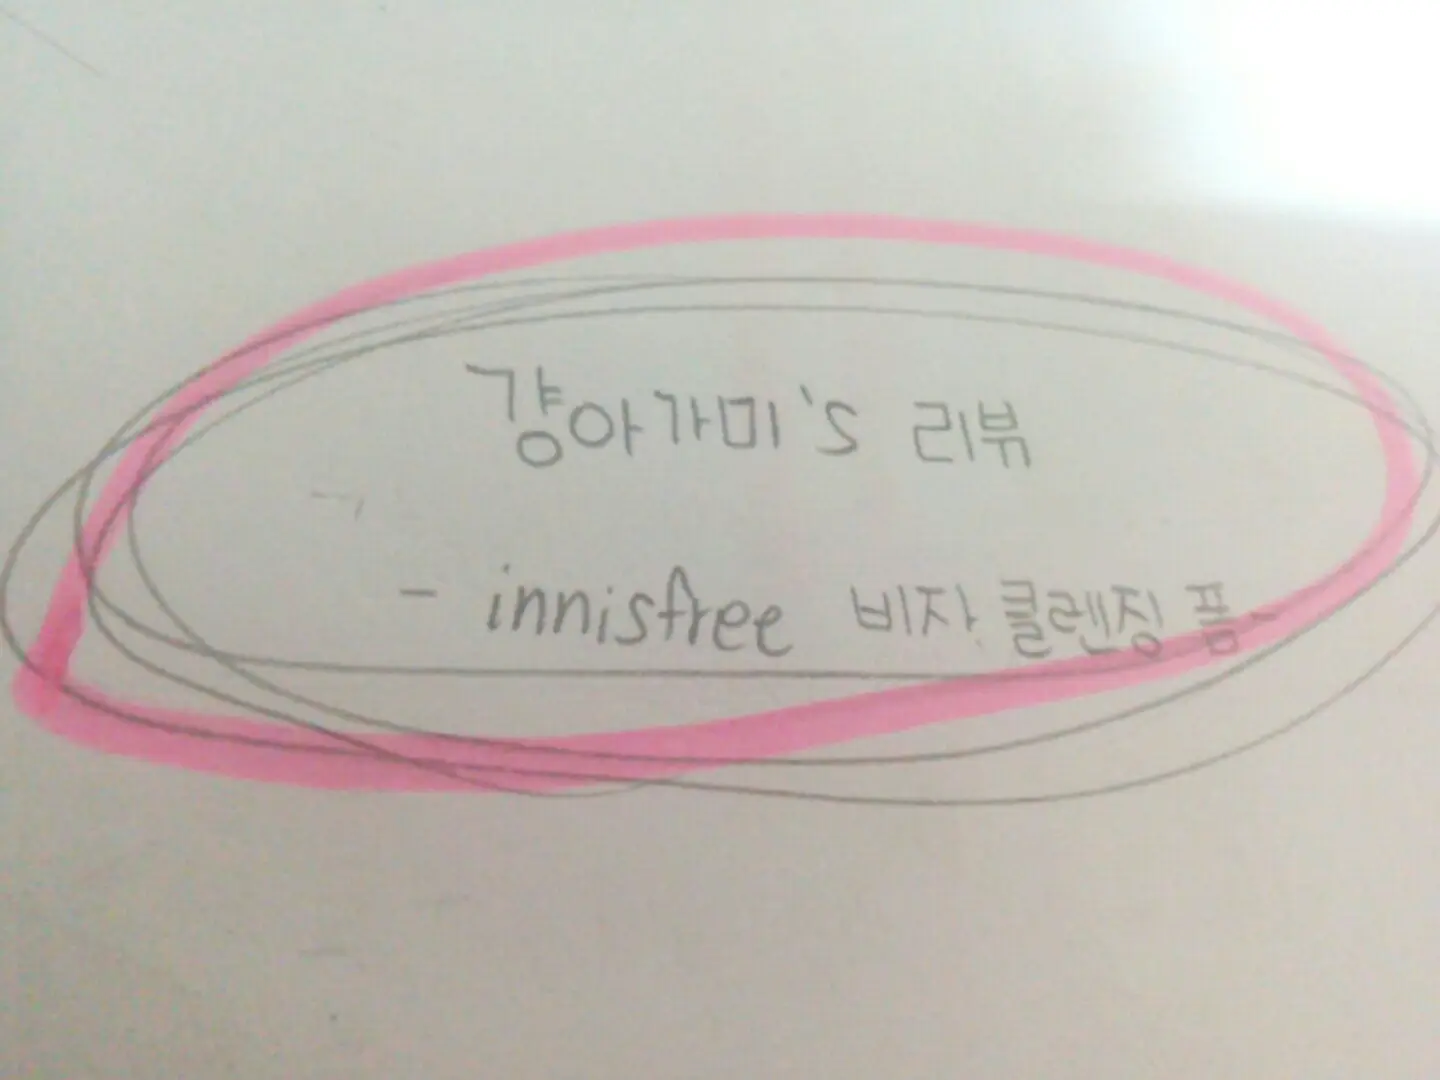 걍아가미's 리뷰
- innisfree 비자 클렌징 폼-